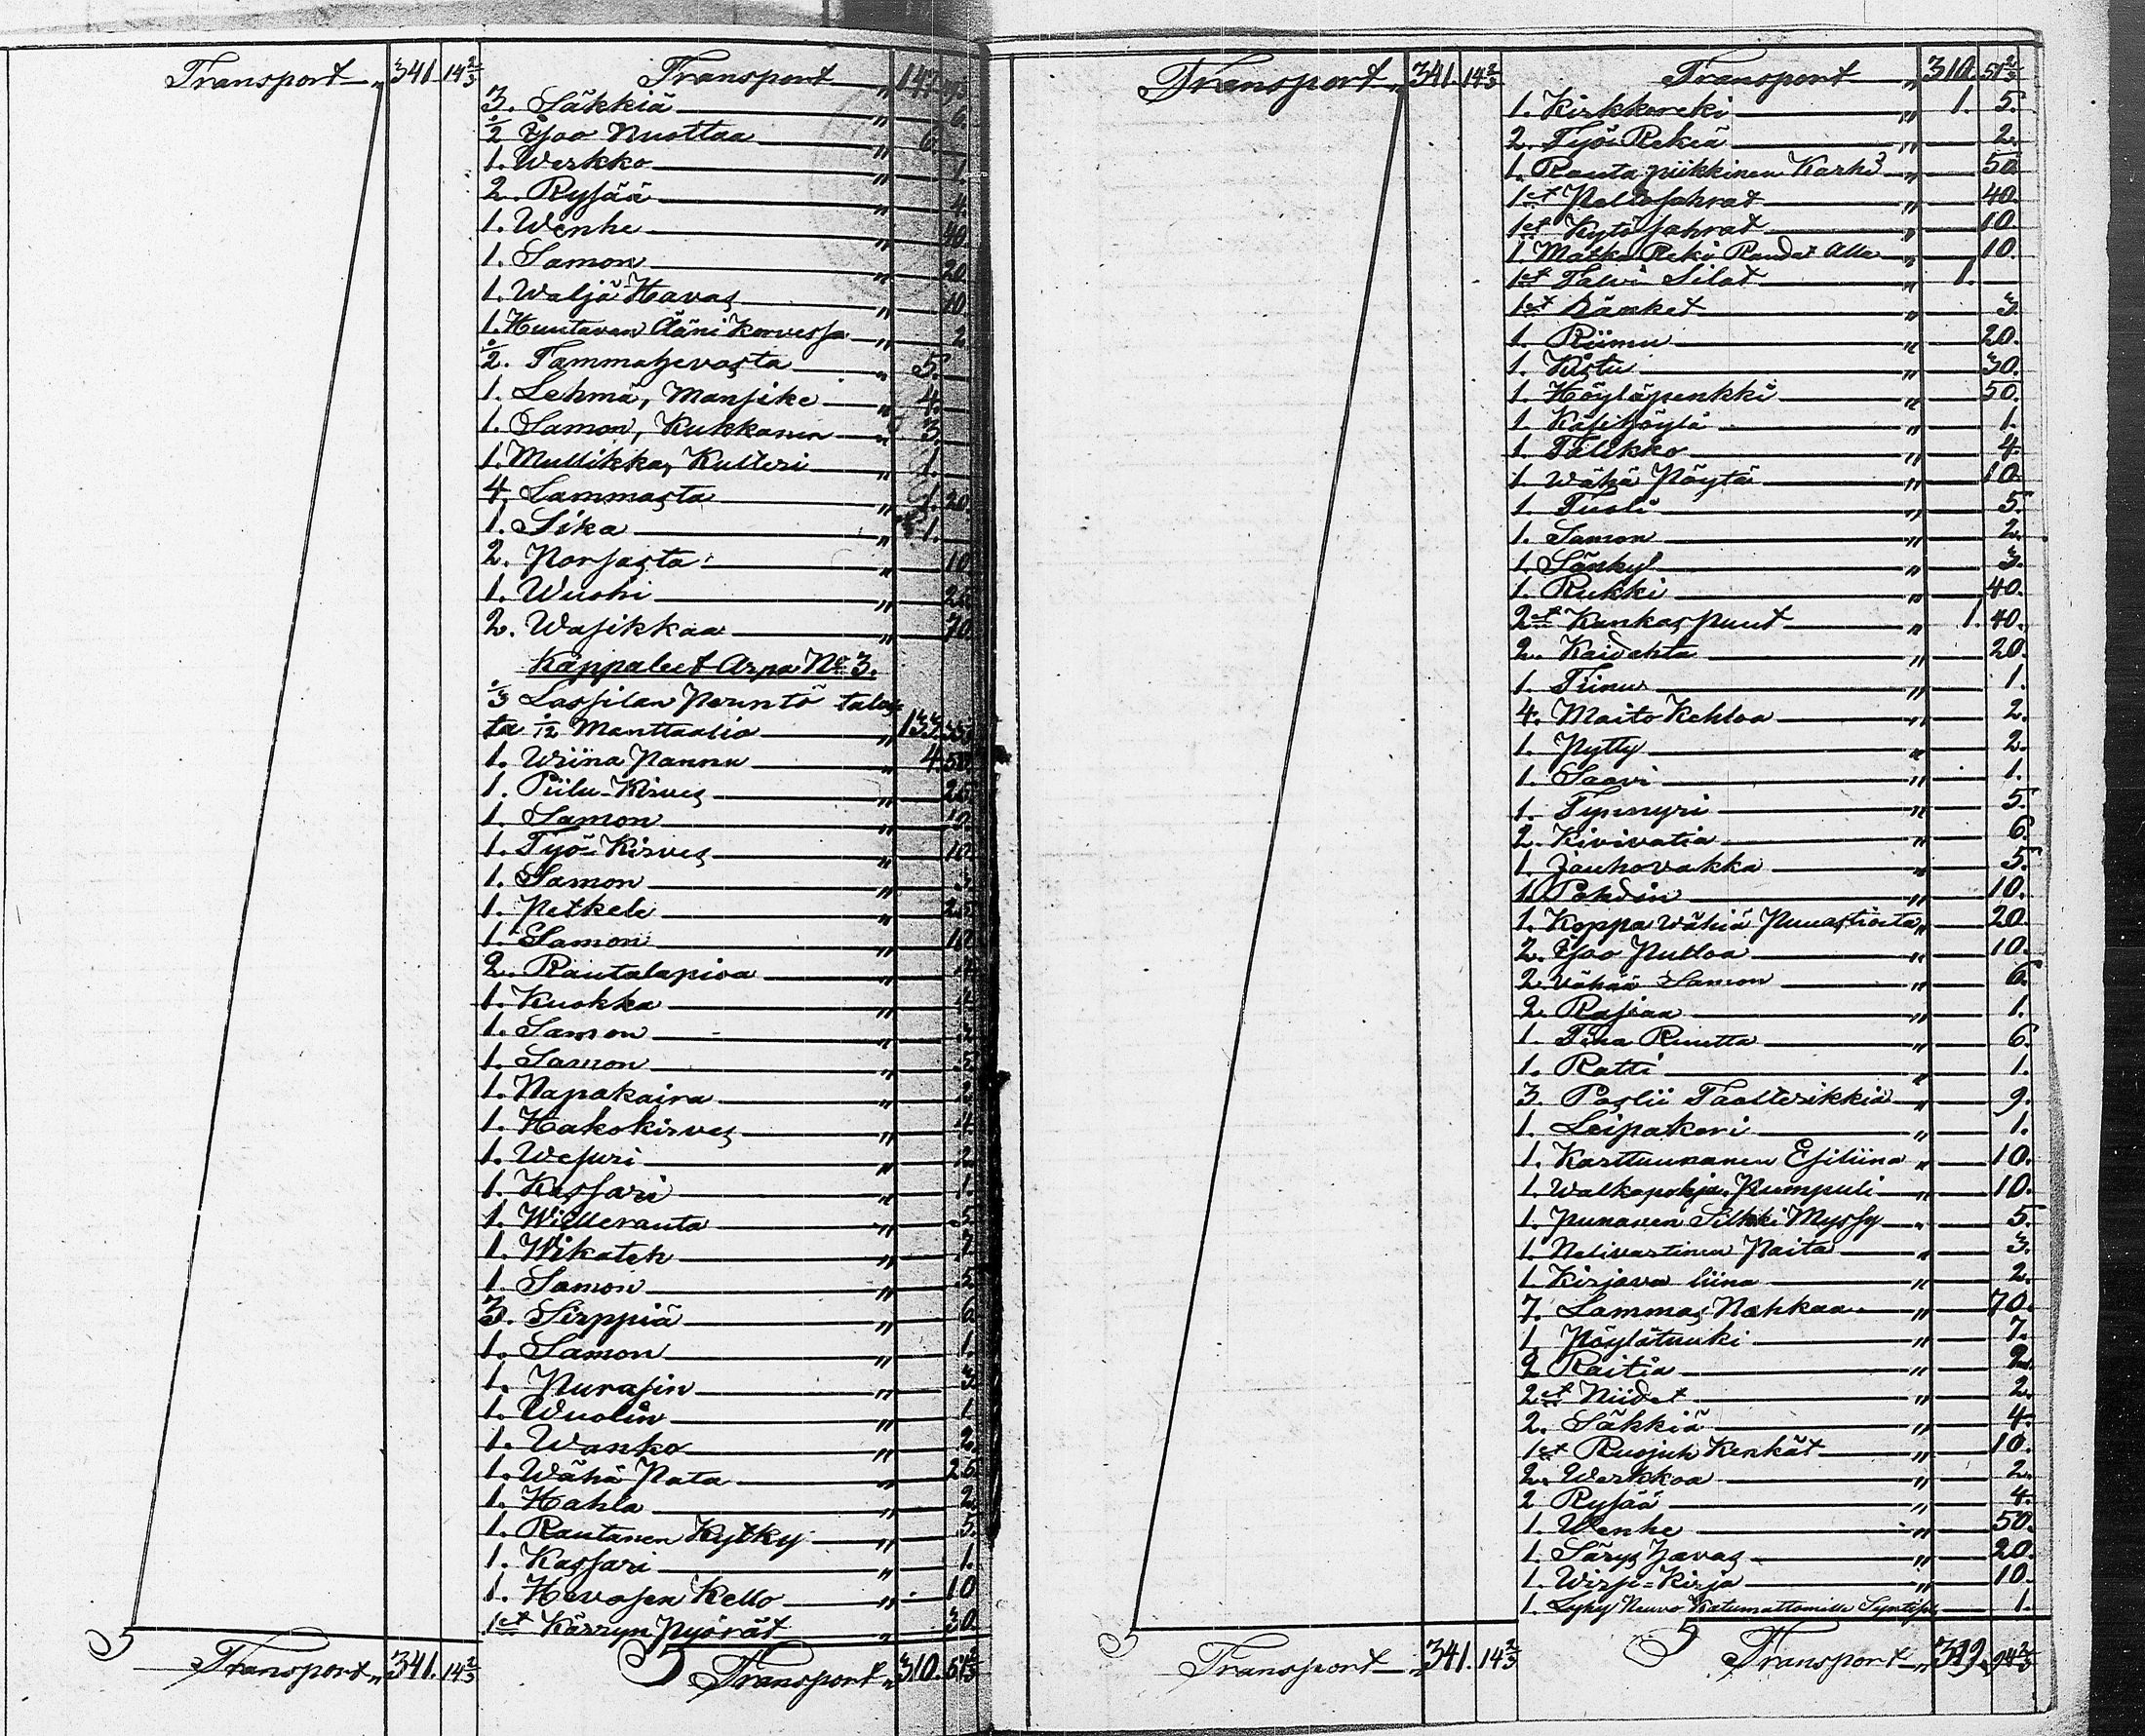 Transport „ 341. 14 2/3
Transport „ 147.
3. Säkkiä „ 6.
1/2 Osa Nuottaa „ 6.
1. Werkko „ 1.
2. Rysää „ 4.
1. Wenhe „ 40.
1. Samon „ 20.
1. Waljä Havas „ 10.
1. Huutavan Ääni Korvessa „ 2.
1/2. Tammahevosta „ 5.
1. Lehmä, Mansike „ 4.
1. Samon, Kukkanen „ 3.
1. Mullikka, Kulteri „ 1.
4. Lammasta „ 1. 20.
1. Sika „ 1.
2. Porsasta „ 10.
1. Wuohi „ 25.
2. Wasikkaa „ 70.
Kappaleet Arpa No 3.
1/3 Lassilan Perintö talos
ta 1/12 Manttaalia „ 133. 33
1. Wiina Pannu „ 4. 50.
1. Piilu-Kirves „ 25.
1. Samon „ 10.
1. Työ-Kirves „ 10.
1. Samon „ 3.
1. Petkele „ 25.
1. Samon „ 10.
2. Rautalapioa „ 4.
1. Kuokka „ 4.
1. Samon „ 2.
1. Samon „ 5.
1. Napakaira „ 2.
1. Hakokirves „ 4.
1. Wesuri „ 2.
1. Kassari „ 1.
1. Willerauta „ 5.
1. Wikateh „ 7.
1. Samon „ 5.
3. Sirppiä „ 6.
1. Samon „ 1.
1. Purasin „ 3.
1. Wuolin „ 1.
1. Wanko „ 2.
1. Wähä Pata „ 25.
1. Hahla „ 2.
1. Rautanen Kytky „ 5.
1. Kassari „ 1.
1. Hevosen Kello „ 10
1 et Kärryn Pyörät „ 30.
Transport „ 341. 14 2/3
Transport „ 310. 51 2/3
Transport „ 341. 14 2/3
Transport „ 310. 51 2/3
1. Kirkkoreki „ 1. 5.
2. Työ Rekiä „ 2.
1. Rauta piikkinen Karhi „ 50.
1 et Peltosahrat „ 40.
1 et Kytösahrat „ 10.
1. Matka Reki Raudat Alla „ 10.
1 et Talvi Silat „ 1.
1 et Länket „ 3.
1. Riimu „ 20.
1. Kistu „ 30.
1. Höyläpenkki „ 50.
1. Käsihöylä „ 1.
1. Tilikko „ 4.
1. Wähä Pöytä „ 10.
1. Tuoli „ 5.
1. Samon „ 2.
1. Sänky „ 3.
1. Rukki „ 40.
2 et Kankas Puut „ 1. 40.
2. Kaidehta „ 20.
1. Tiinu „ 1.
4. Maito Kehloa „ 2.
1. Pytty „ 2.
1. Saavi „ 1.
1. Tynnyri „ 5.
2. Kivivatia „ 6.
1. Jauhovakka „ 5.
1. Pohdin „ 10.
1. Koppa Wähiä Puuastioita „ 20.
2. Osa Pulloa „ 10.
2. Vähää Samon „ 6.
2. Rasiaa „ 1.
1. Tina Ruutta „ 6.
1. Ratti „ 1.
3. Poslii Taalterikkiä „ 9.
1. Leipakori „ 1.
1. Karttuunanen Esiliina „ 10.
1. Walkapohja Kumpuli „ 10.
1. Punanen Silkki Myssy „ 5.
1. Nelivartinen Paita „ 3.
1. Kirjava liina „ 2.
7. Lammas Nahkaa „ 70.
1. Pöylätuuki „ 7.
2. Raitia „ 2.
2 et Niidet „ 2.
2. Säkkiä „ 4.
1 et Ruojuh Kenkät „ 10.
2. Werkkoa „ 2.
2. Rysää „ 4.
1. Wenhe „ 50.
1. Särys havas „ 20.
1. Wirsi-Kirja „ 10.
1. Lyhy Neuvo Katumattomille „ 1.
Transport „ 341. 14 2/3
Transport „ 319. 94 2/3